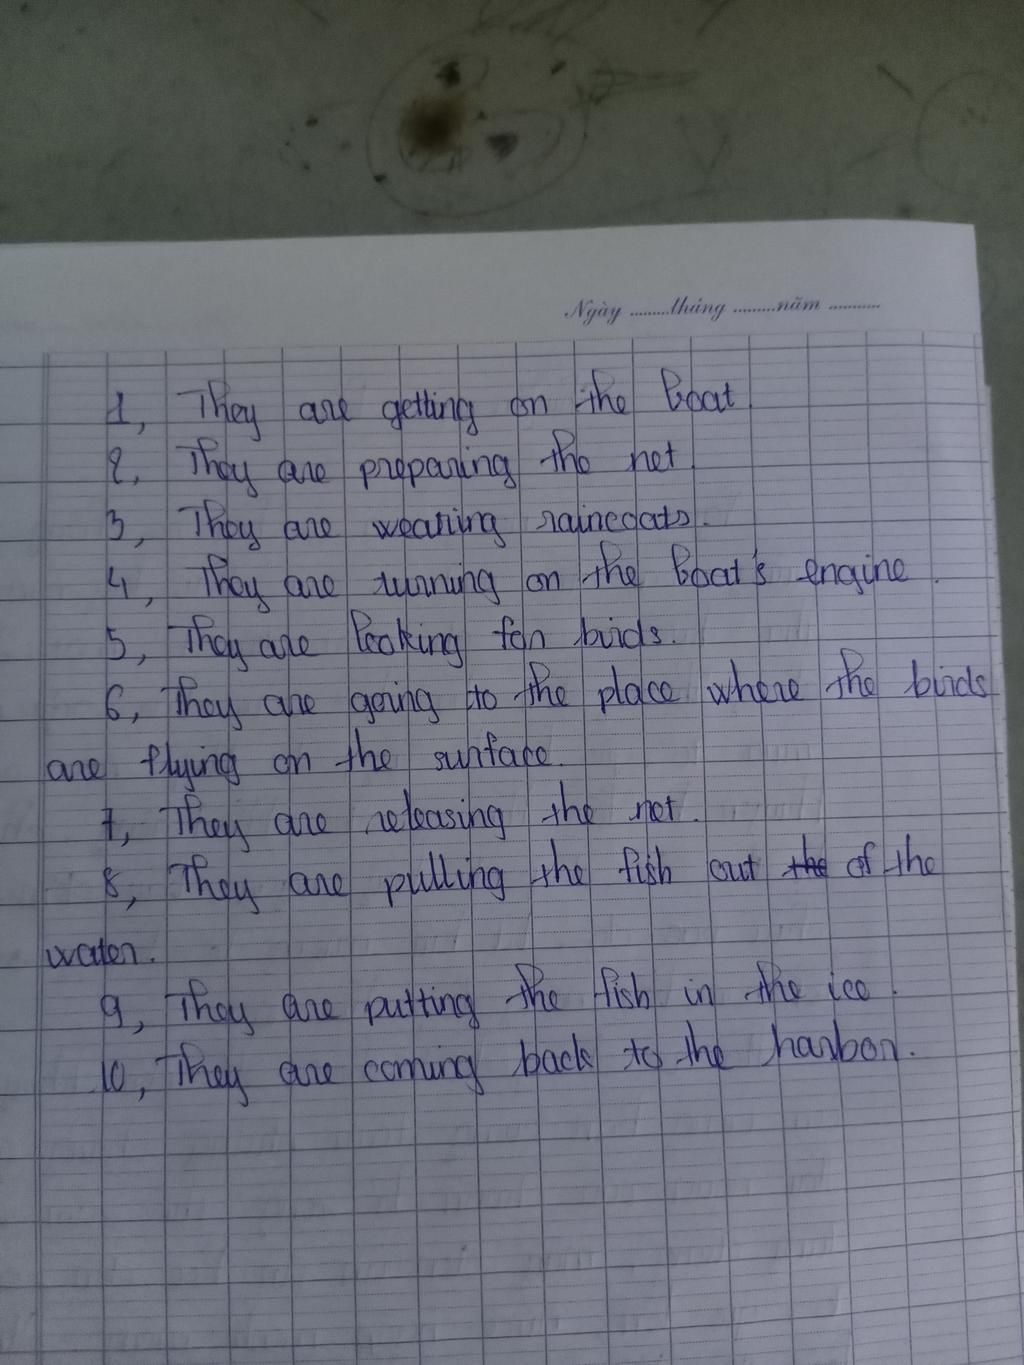 Ngày ........tháng .........năm ...........
1, They are getting on the boat.
2, They are preparing the net.
3, They are wearing rainecoats.
4, They are turning on the boat's engine.
5, They are looking for birds.
6, They are going to the place where the birds
are flying on the surface.
7, They are releasing the net.
8, They are pulling the fish out the of the
water.
9, They are putting the fish in the ice.
10, They are coming back to the harbor.